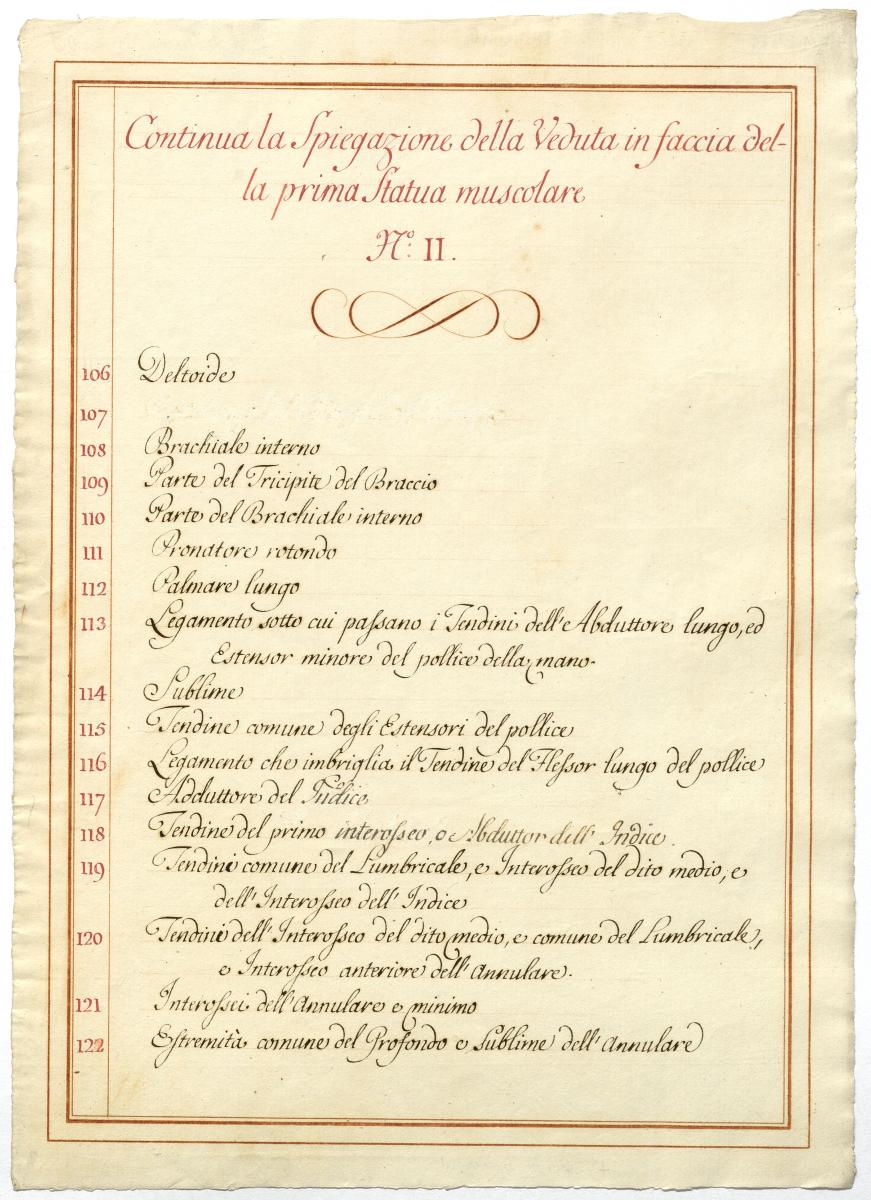 Continua la Spiegazione della Veduta in faccia del-
la prima Statua muscolare
N.º II.
106 Deltoide
107
108 Brachiale interno
109 Parte del Tricipite del Braccio
110 Parte del Brachiale interno
111 Pronatore rotondo
112 Palmare lungo
113 Legamento sotto cui passano i Tendini dell'Abduttore lungo, ed
Estensor minore del pollice della mano.
114 Sublime
115 Tendine comune degli Estensori del pollice
116 Legamento che imbriglia il Tendine del Flessor lungo del pollice
117 Adduttore del Indice
118 Tendine del primo interosseo, o Abduttor dell' Indice.
119 Tendini comune del Lumbricale, e Interosseo del dito medio, e
dell'Interosseo dell' Indice
120 Tendini dell'Interosseo del dito medio, e comune del Lumbricale,
e Interosseo anteriore dell'Annulare.
121 Interossei dell'Annulare e minimo
122 Estremità comune del Profondo e Sublime dell'Annulare